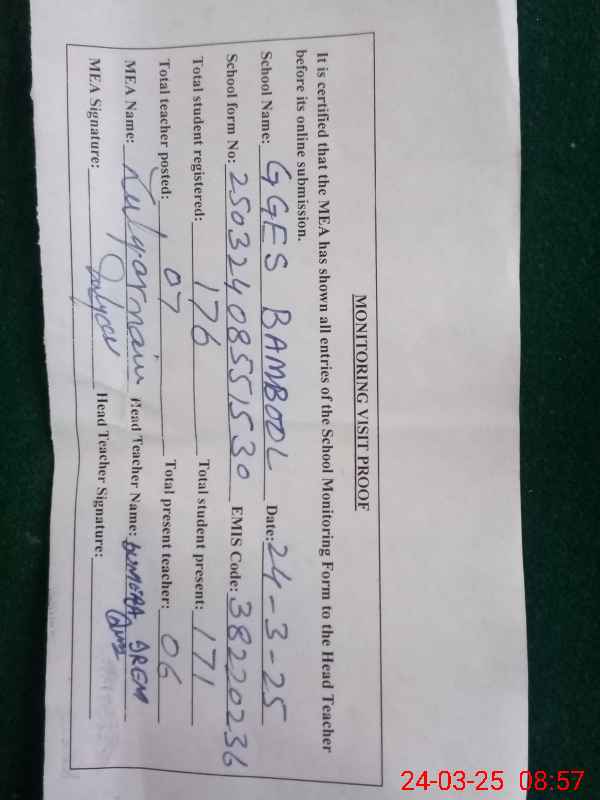 MONITORING VISIT PROOF
It is certified that the MEA has shown all entries of the School Monitoring Form to the Head Teacher
before its online submission.
School Name: GGES BAMBOOL Date: 24-3-25
School form No: 25032408551530 EMIS Code: 38220236
Total student registered: 176 Total student present: 171
Total teacher posted: 07 Total present teacher: 06
MEA Name: Zulqarnain Head Teacher Name:
MEA Signature: Head Teacher Signature:
24-03-25 08:57